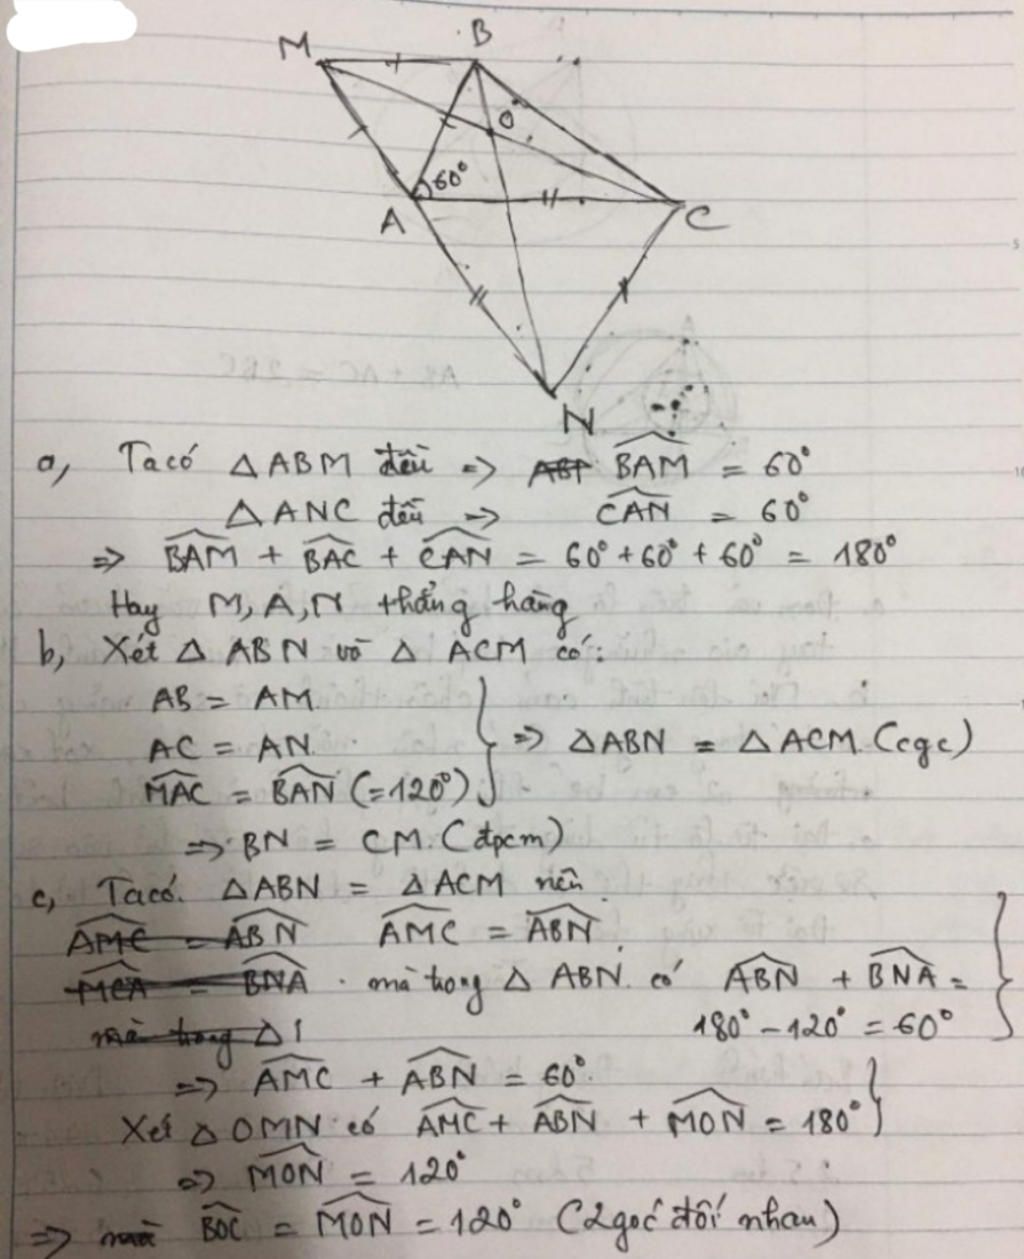 M
B
O
60°
A
C
N
a, Ta có △ABM đều => ABT BAM = 60°
△ANC đều => CAN = 60°
=> BAM + BAC + CAN = 60° + 60° + 60° = 180°
Hay M, A, N thẳng hàng
b, Xét △ ABN và △ ACM có:
AB = AM.
AC = AN. => △ABN = △ACM. (cgc)
MAC = BAN (=120°)
=> BN = CM. (đpcm)
c, Ta có. △ABN = △ACM nên
AMC = ABN AMC = ABN.
MCA = BNA . mà trong △ ABN. có ABN + BNA =
mà trong △1 180° - 120° = 60°
=> AMC + ABN = 60°.
Xét △OMN có AMC + ABN + MON = 180°
=> MON = 120°
=> mà BOC = MON = 120° (2 góc đối nhau)